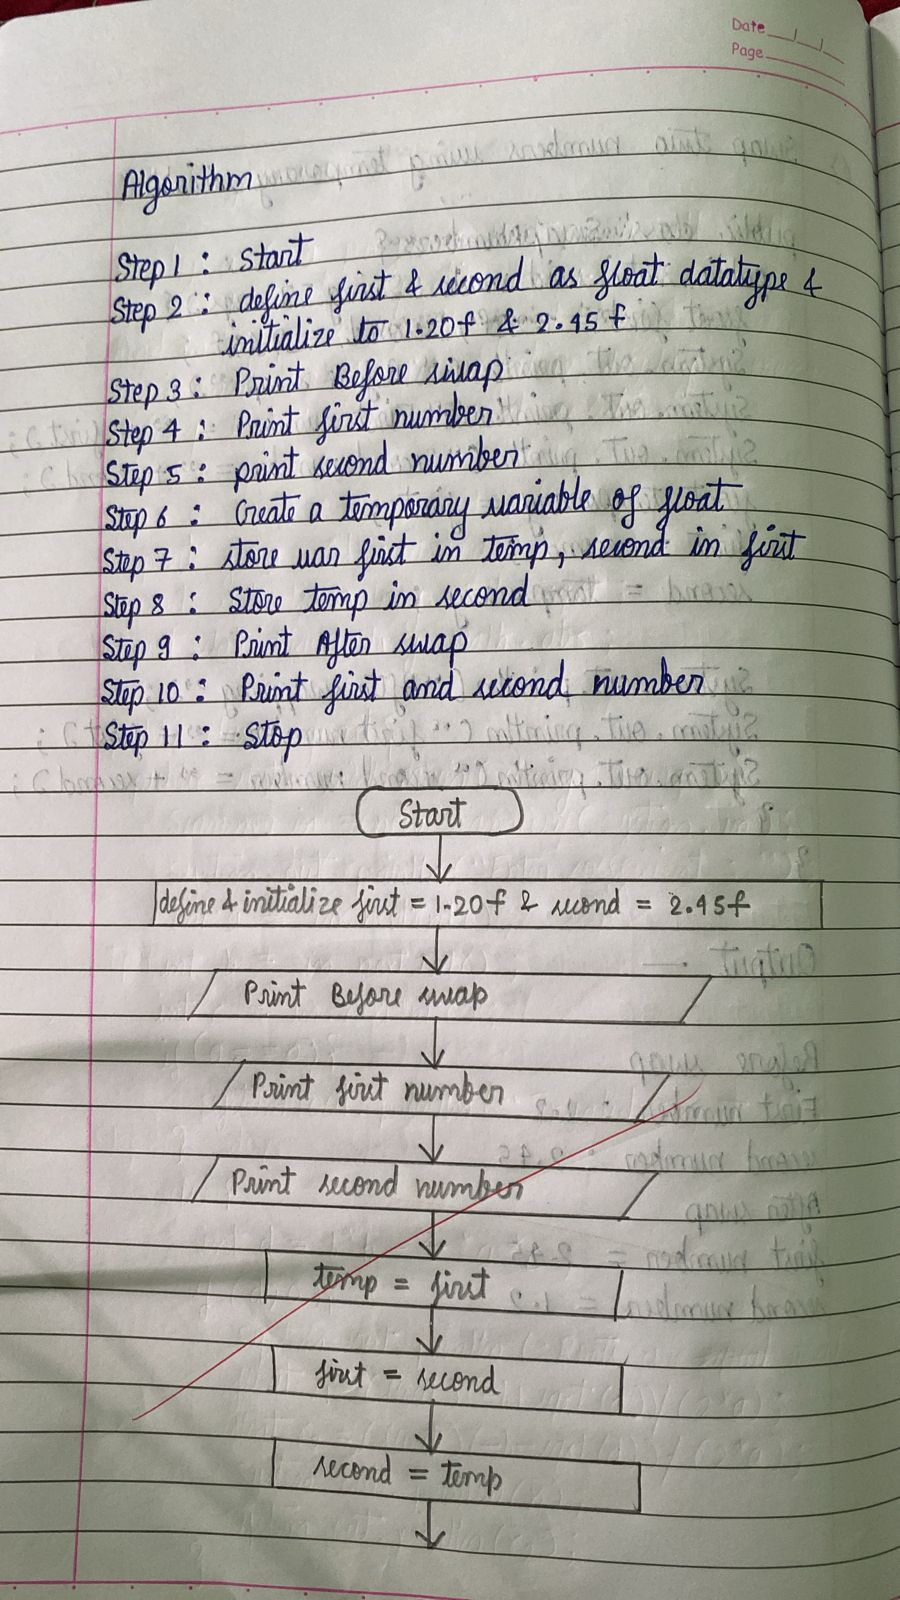 Date
Page
Algorithm
Step 1 : Start
Step 2 : define first & second as float datatype &
initialize to 1.20f & 2.45f
Step 3 : Print Before swap
Step 4 : Print first number
Step 5 : print second number
Step 6 : Create a temporary variable of float
Step 7 : store var first in temp, second in first
Step 8 : Store temp in second
Step 9 : Print After swap
Step 10 : Print first and second number
Step 11 : Stop
Start
define & initialize first = 1.20f & second = 2.45f
Print Before swap
Print first number
Print second number
temp = first
first = second
second = temp